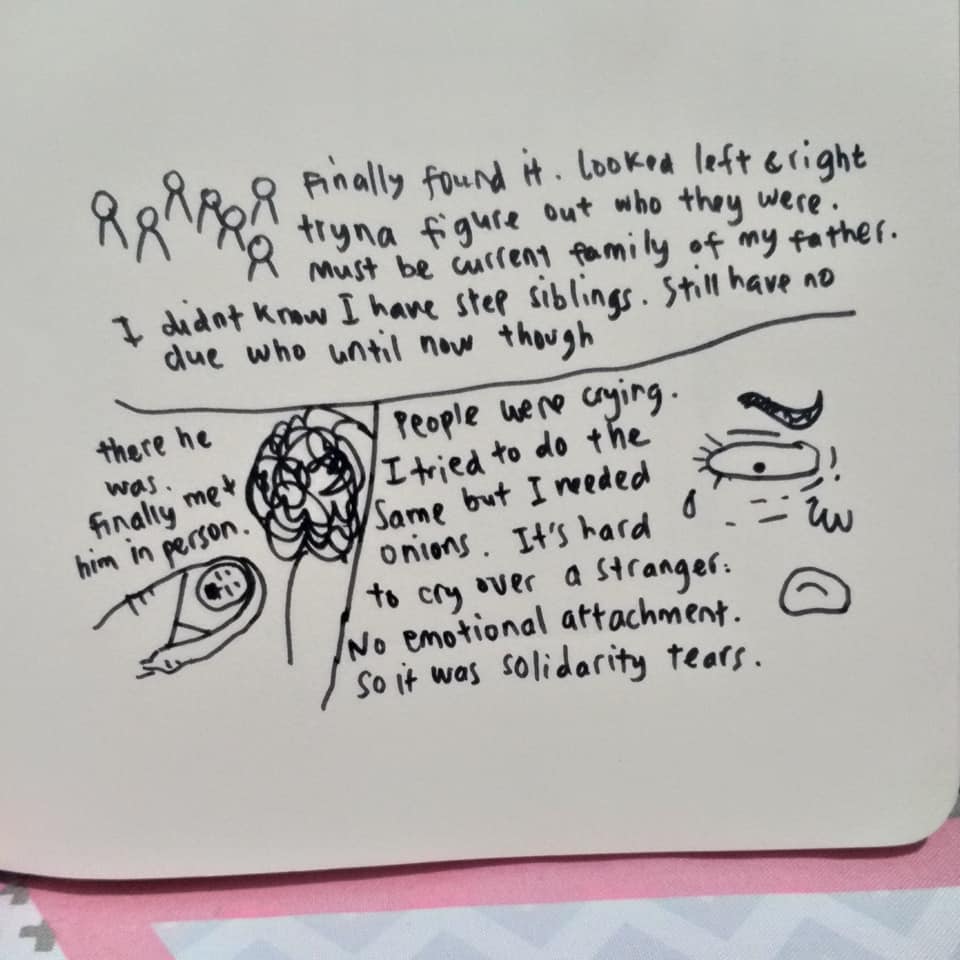 Finally found it. Looked left & right
tryna figure out who they were.
Must be current family of my father.
I didnt know I have step siblings. Still have no
clue who until now though
there he
was.
finally met
him in person.
People were crying.
I tried to do the
same but I needed
onions. It's hard
to cry over a stranger.
No emotional attachment.
So it was solidarity tears.